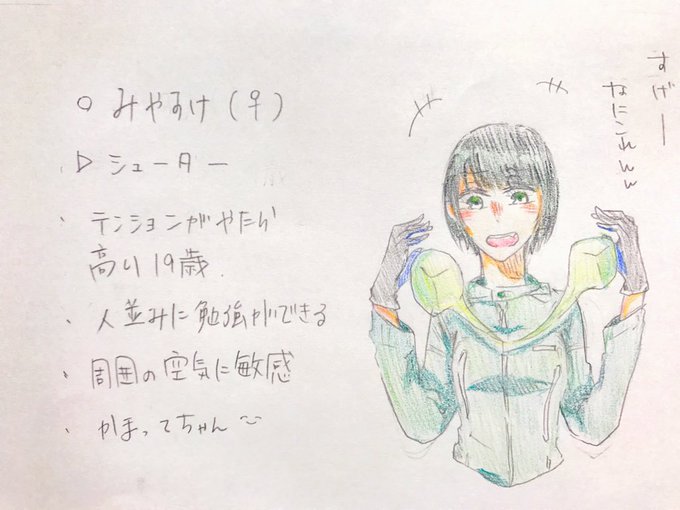 ○ みやすけ(♀)
▷ シューター
・ テンションがやたら
高い19歳.
・ 人並みに勉強ができる
・ 周囲の空気に敏感
・ かまってちゃん
すげー
なにこれんん